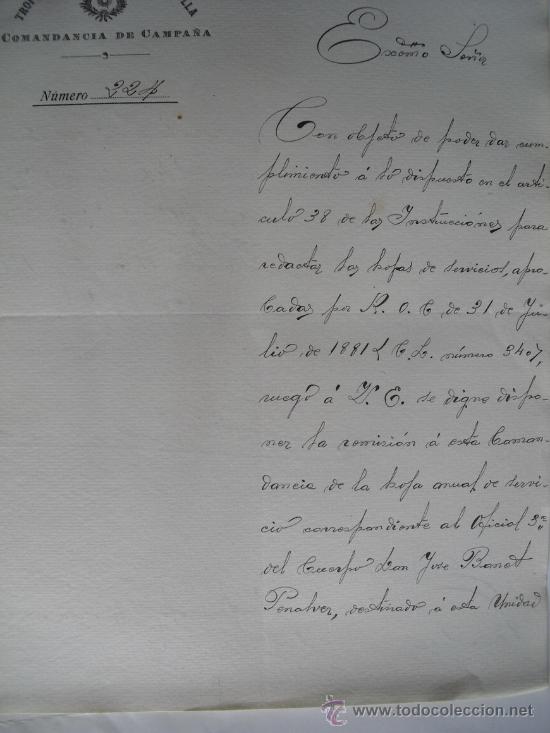 TROP LLA
COMANDANCIA DE CAMPAÑA
Número 224
Excmo Señor
Con objeto de poder dar cum-
plimiento á lo dispuesto en el arti-
culo 38 de las Instrucciones para
redactar las hojas de servicios, apro-
badas por R. O. C de 31 de Ju-
lio de 1881 C. L. número 340,
ruego á V. E. se digne dispo-
ner la remisión á esta Coman-
dancia de la hoja anual de servi-
cio correspondiente al Oficial 3º
del Cuerpo Don José Banet
Penalver, destinado á esta Unidad
todocoleccion
www.todocoleccion.net